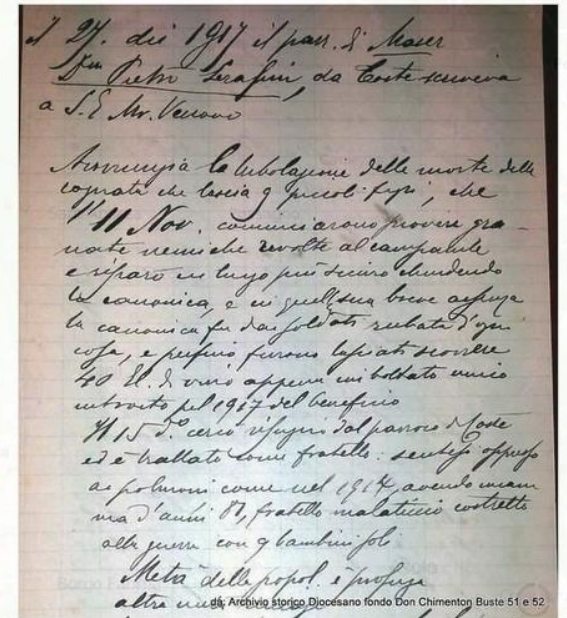 il 27. dic 1917 il parr. di Maser
Don Pietro Serafini, da Coste scriveva
a S. E Mr. Vescovo
Annunzia la tribolazione della morte della
cognata che lascia 9 piccoli figi, che
l'11 Nov. cominciarono piovere gra-
nate nemiche rivolte al campanile
e riparò in luogo più sicuro chiudendo
la canonica, e in quella sua breve assenza
la canonica fu dai soldati rubata d'ogni
cosa, e perfino furono lasciati scorrere
40 El. di vino appena imbottato unico
introito pel 1917 del beneficio
Il 15 do cercò rifugio dal parroco di Coste
ed è trattato come fratello: sentesi oppresso
ai polmoni come nel 1914, avendo mam
ma d'anni 81, fratello malaticcio costretto
alla guerra con 9 bambini soli
Metà della popol. è profuga
altre
da: Archivio storico Diocesano fondo Don Chimenton Buste 51 e 52